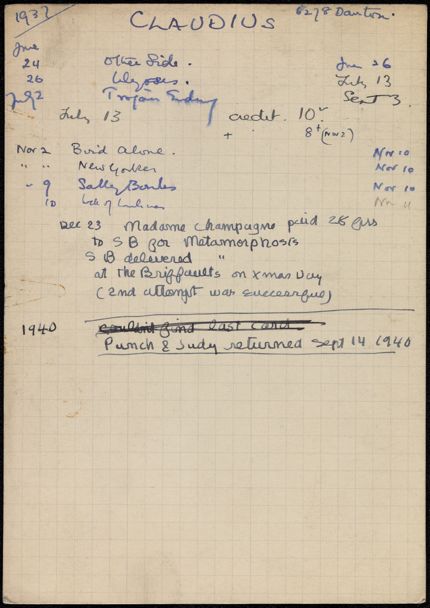 1937 CLAUDIUS 6278 Danton.
June
24 Other Side. June 26
26 Ulysses. July 13
July 2 Trojan Sept 3
July 13 credit. 10
+ 8+ (Nov 2)
Nov 2 Bird Alone. Nov 10
" " New Yorker Nov 10
" 9 Sally Bowles Nov 10
10 Nov 11
Dec 23 Madame Champagne paid 28 frs
to S B for Metamorphosis
S B delivered "
at the Briffaults on Xmas Day
(2nd attempt was successful)
1940 couldn't find last card
Punch & Judy returned Sept 14 1940